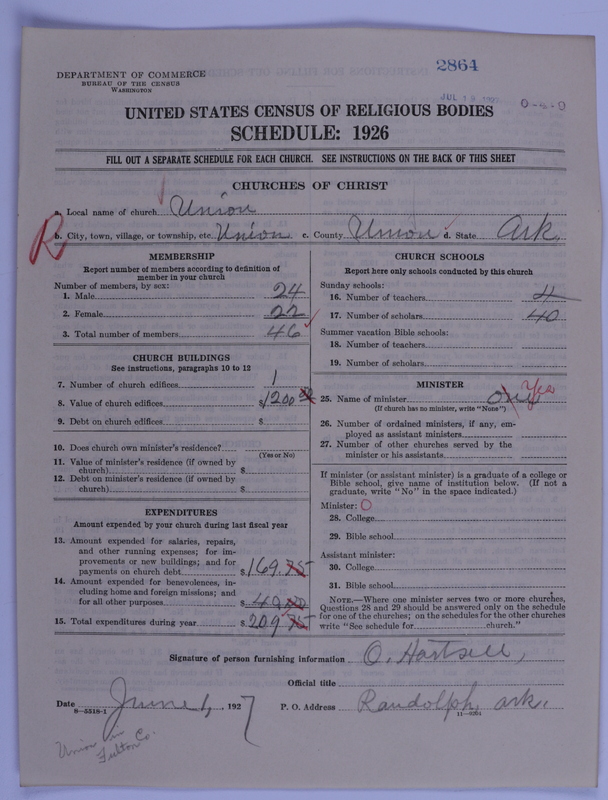 2864
DEPARTMENT OF COMMERCE
BUREAU OF THE CENSUS
WASHINGTON
JUL 19
UNITED STATES CENSUS OF RELIGIOUS BODIES
SCHEDULE: 1926
FILL OUT A SEPARATE SCHEDULE FOR EACH CHURCH. SEE INSTRUCTIONS ON THE BACK OF THIS SHEET
CHURCHES OF CHRIST
a. Local name of church Union
R
b. City, town, village, or township, etc. Union c. County Union d. State Ark
MEMBERSHIP
Report number of members according to definition of
member in your church
Number of members, by sex:
1. Male 24
2. Female 22
3. Total number of members 46
CHURCH BUILDINGS
See instructions, paragraphs 10 to 12
7. Number of church edifices 1
8. Value of church edifices $1200 00
9. Debt on church edifices $
10. Does church own minister's residence?
(Yes or No)
11. Value of minister's residence (if owned by
church) $
12. Debt on minister's residence (if owned by
church) $
EXPENDITURES
Amount expended by your church during last fiscal year
13. Amount expended for salaries, repairs,
and other running expenses; for im-
provements or new buildings; and for
payments on church debt $169.75
14. Amount expended for benevolences, in-
cluding home and foreign missions; and
for all other purposes $40.00
15. Total expenditures during year $209.75
CHURCH SCHOOLS
Report here only schools conducted by this church
Sunday schools:
16. Number of teachers 4
17. Number of scholars 40
Summer vacation Bible schools:
18. Number of teachers
19. Number of scholars
MINISTER
25. Name of minister one Yes
(If church has no minister, write "None")
26. Number of ordained ministers, if any, em-
ployed as assistant ministers
27. Number of other churches served by the
minister or his assistants
If minister (or assistant minister) is a graduate of a college or
Bible school, give name of institution below. (If not a
graduate, write "No" in the space indicated.)
Minister: O
28. College
29. Bible school
Assistant minister:
30. College
31. Bible school
NOTE.—Where one minister serves two or more churches,
Questions 28 and 29 should be answered only on the schedule
for one of the churches; on the schedules for the other churches
write "See schedule for church."
Signature of person furnishing information O. Hartsell,
Official title
Date June 1, 1927 P. O. Address Randolph, ark.
8—5518-1
Union in
Fulton Co.